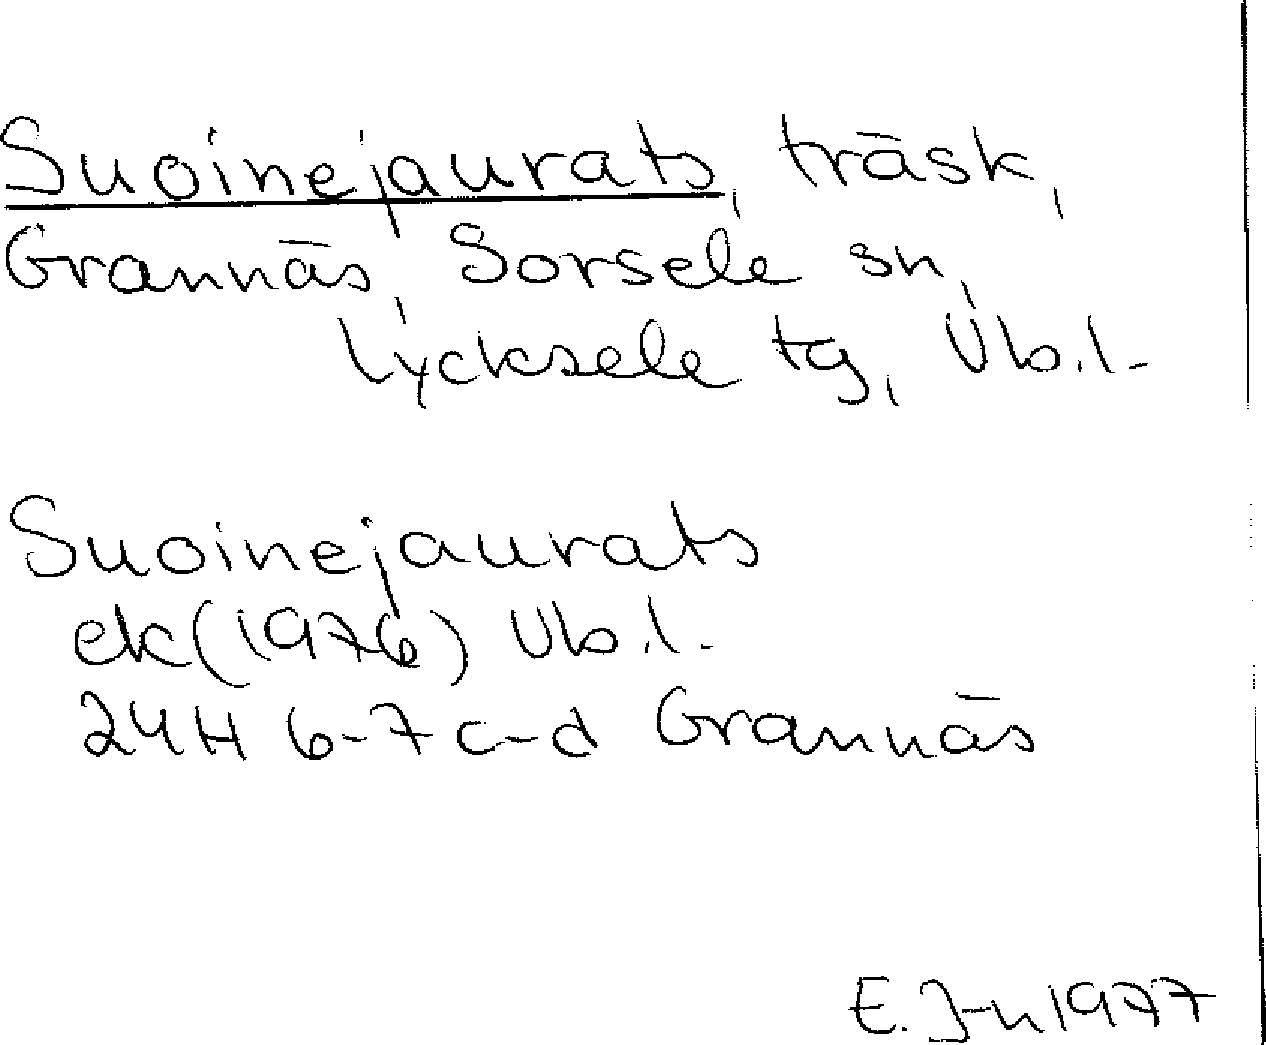 Suoinejaurats, träsk,
Grannäs, Sorsele sn,
Lycksele tg, Vb.l.
Suoinejaurats
ek(1976) Vb.l.
24H 6-7 c-d Grannäs
E. J-n 1977